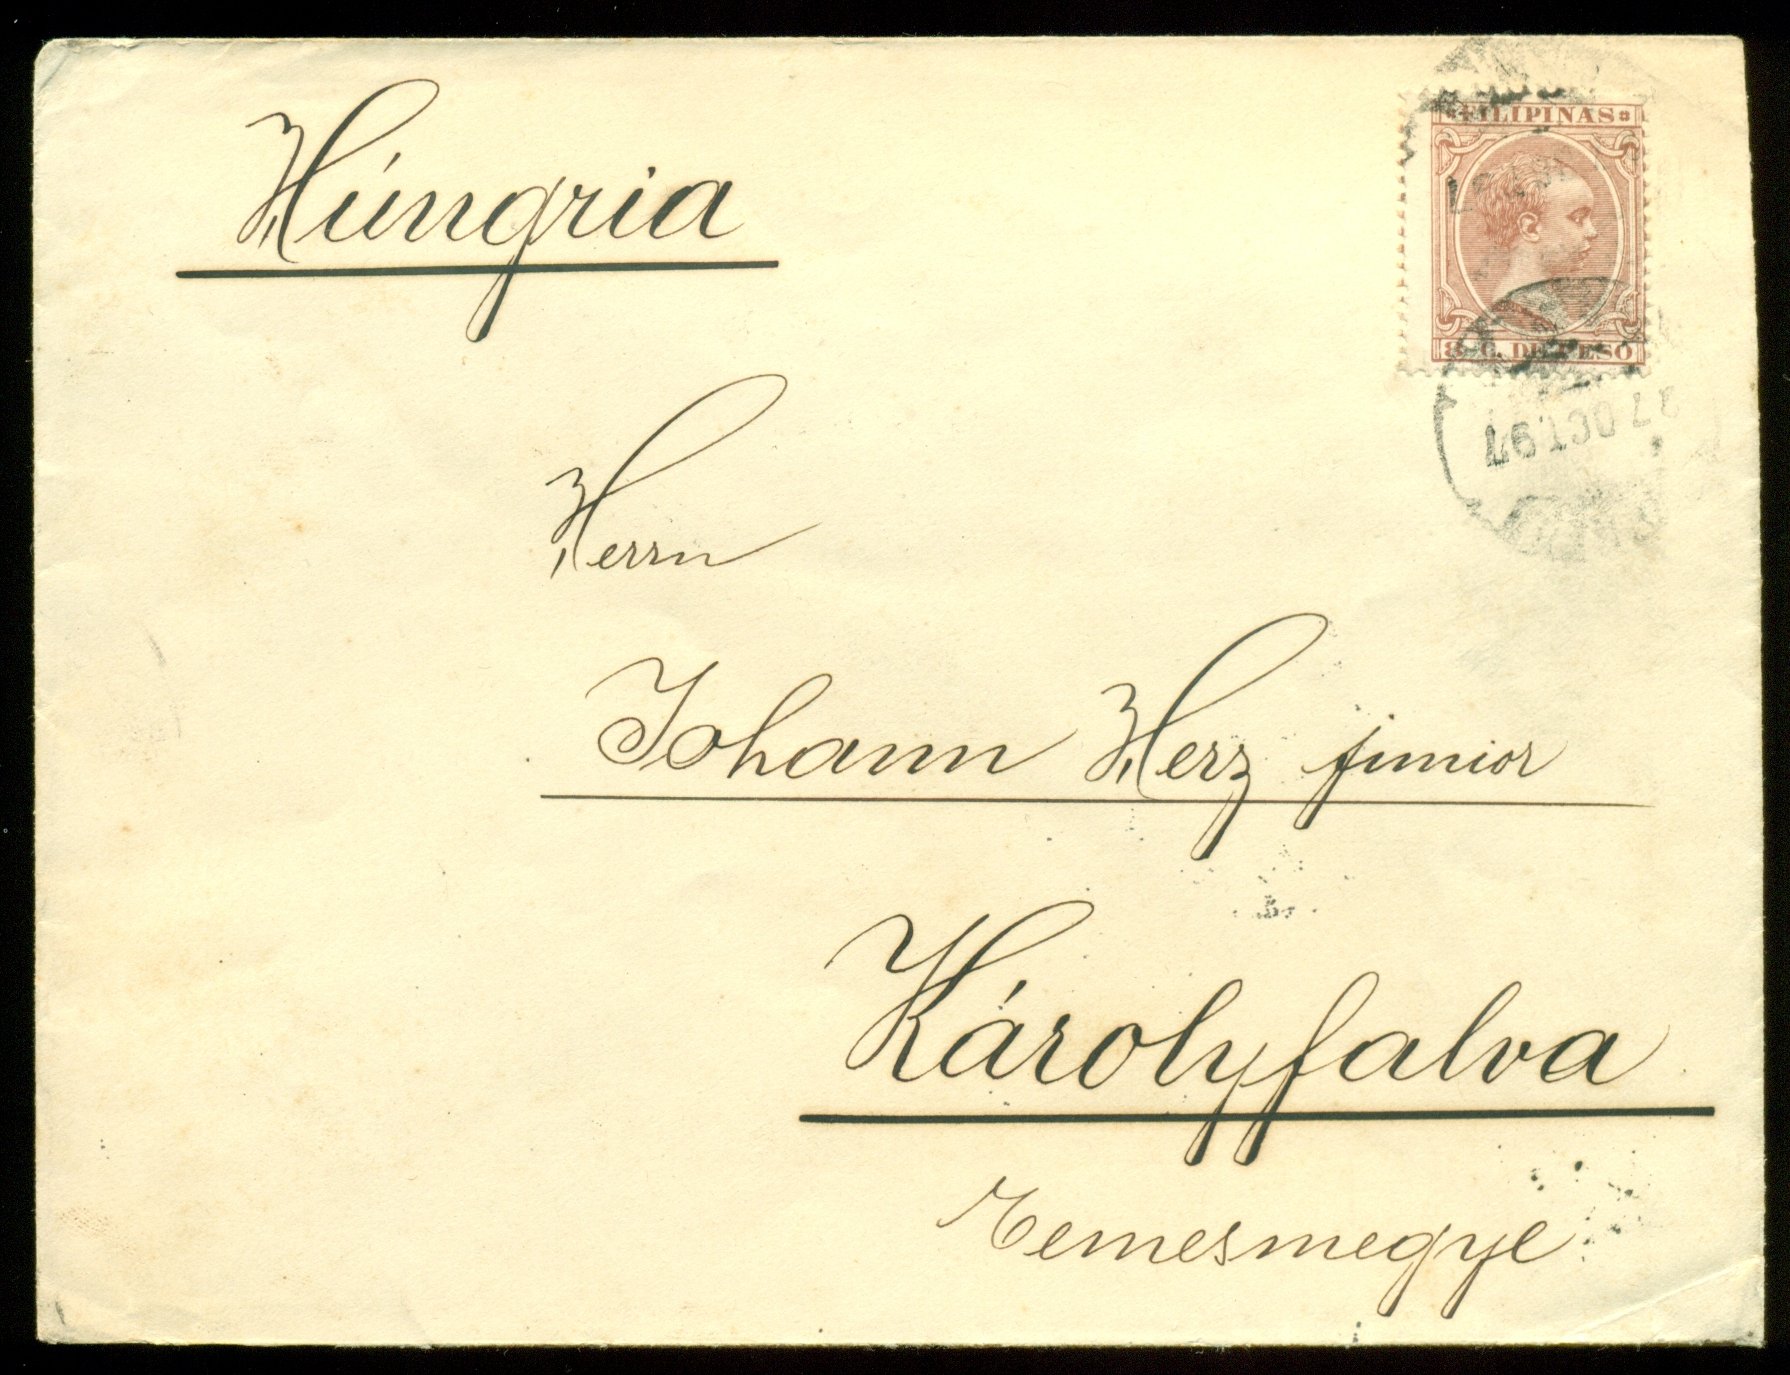 Húngria
FILIPINAS
8 C. DE PESO
27 OCT 97
Herrn
Johann Herz junior
Károlyfalva
Temesmegye